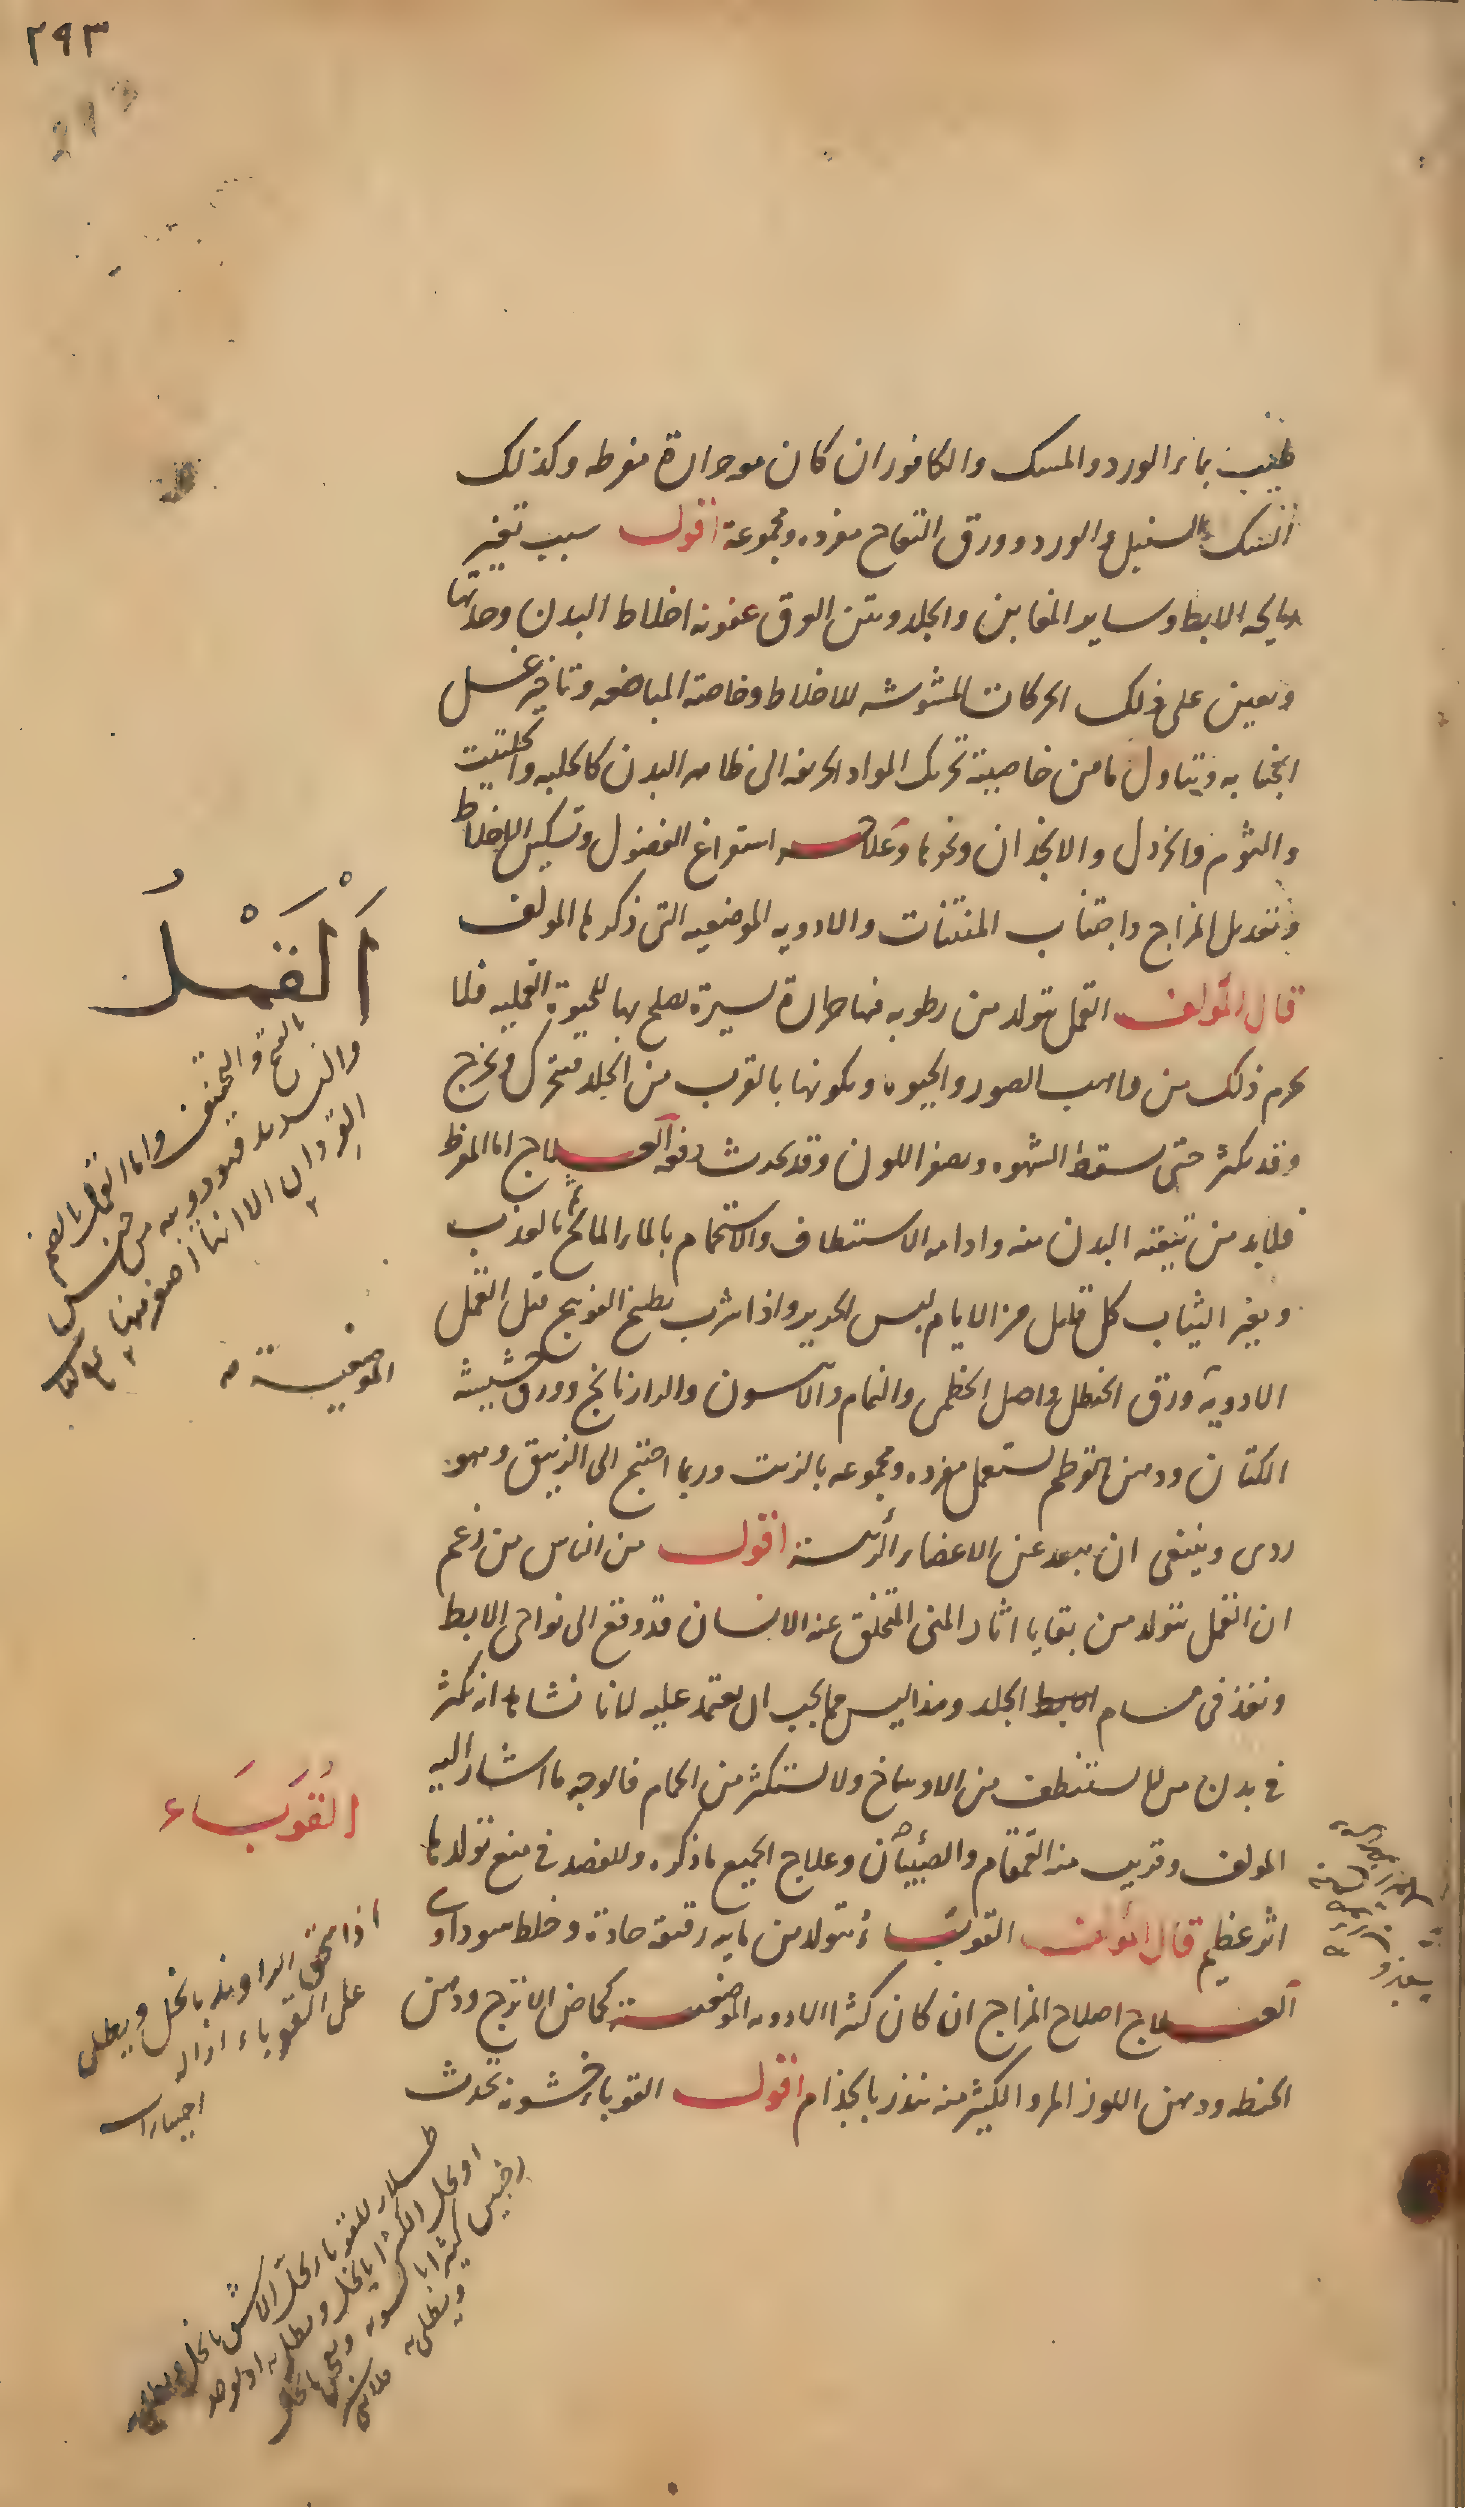 ٢٩٣
طبيب بماء الورد والمسك والكافور ان كان هو حرارة مفرطه وكذلك
السك والسنبل والورد وورق التفاح مفرده ومجموعة اقول سبب تغير
رايحه الابط وساير المغابن والجلد ونتن العرق عفونه اخلاط البدن وحدتها
ويعين على ذلك الحركات المشوشه للاخلاط وخاصه المباضعه وتاخير غسل
الجنابه وتناول ما من خاصيته تحريك المواد الحريفه الى ظاهر البدن كالحلبه والحلتيت
والثوم والخردل والانجذان ونحوها وعلاجه استفراغ الفضول وتسكين الاخلاط
وتعديل المزاج واجتناب المنتنات والادويه الموضعيه التى ذكرها المولف
قال المولف القمل يتولد من رطوبه فيها حرارة يسيرة يصلح بها للحيوة القمليه فلا
يحرم ذلك من واهب الصور والحيوه ويكونها بالقرب من الجلد فيتحرك ويخرج
وقد يكثر حتى يسقط الشهوه ويصفر اللون وقد يحدث دفعه العلاج اما المفرط
فلابد من تنقيته البدن منه وادامه الاستنظاف والاستحمام بالماء المالح ثم بالعذب
ويغير الثياب كل قليل من الايام لبس الحرير واذا شرب بطبخ الفوتنج قتل القمل
الادوية ورق الحنظل واصل الخطمى والنمام والآنيسون والرازيانج وورق شيشه
الكتان ودهن القرطم يستعمل مفرده ومجموعه بالزيت وربما احتيج الى الزيبق وهو
ردى وينبغى ان يبعد عن الاعضاء الرئيسة اقول من الناس من زعم
ان القمل يتولد من بقايا اثار المنى المتخلق عنه الانسان قد وقع الى نواحى الابط
ونفذ فى مسام الجلد وهذا ليس مما يجب ان يعتمد عليه لانا نشاهد انه يكثر
فى بدن من لا يستنظف من الاوساخ ولا يستكثر من الحمام فالوجه ما اشار اليه
المولف وقريب منه القمقام والصيبان وعلاج الجميع ما ذكره وللفصد فى منع تولدها
اثر عظيم قال المولف القوباء يتولد من مايه رقيقة حادة وخلط سوداوى
العلاج اصلاح المزاج ان كان كثيرا الادويه الموضعية كحماض الاترج ودهن
الحنطه ودهن اللوز المر والكثير منه ينذر بالجذام اقول القوباء خشونه تحدث
اَلْقَمْلُ
بالفتح والتخفيف واما القمل بالضم
والتشديد فهو دويبه من جنس
القردان الا انها اصغر منها
الموضعية صه
القُوَبَاء
اذا سحق الراوند بالخل ويطلى
على القوباء ازاله
اختيارات
طلاء للقوباء يحل الاشق بالخل ويطلى به
او يحل الكثيرا بالخل ويطلى به او يوخذ